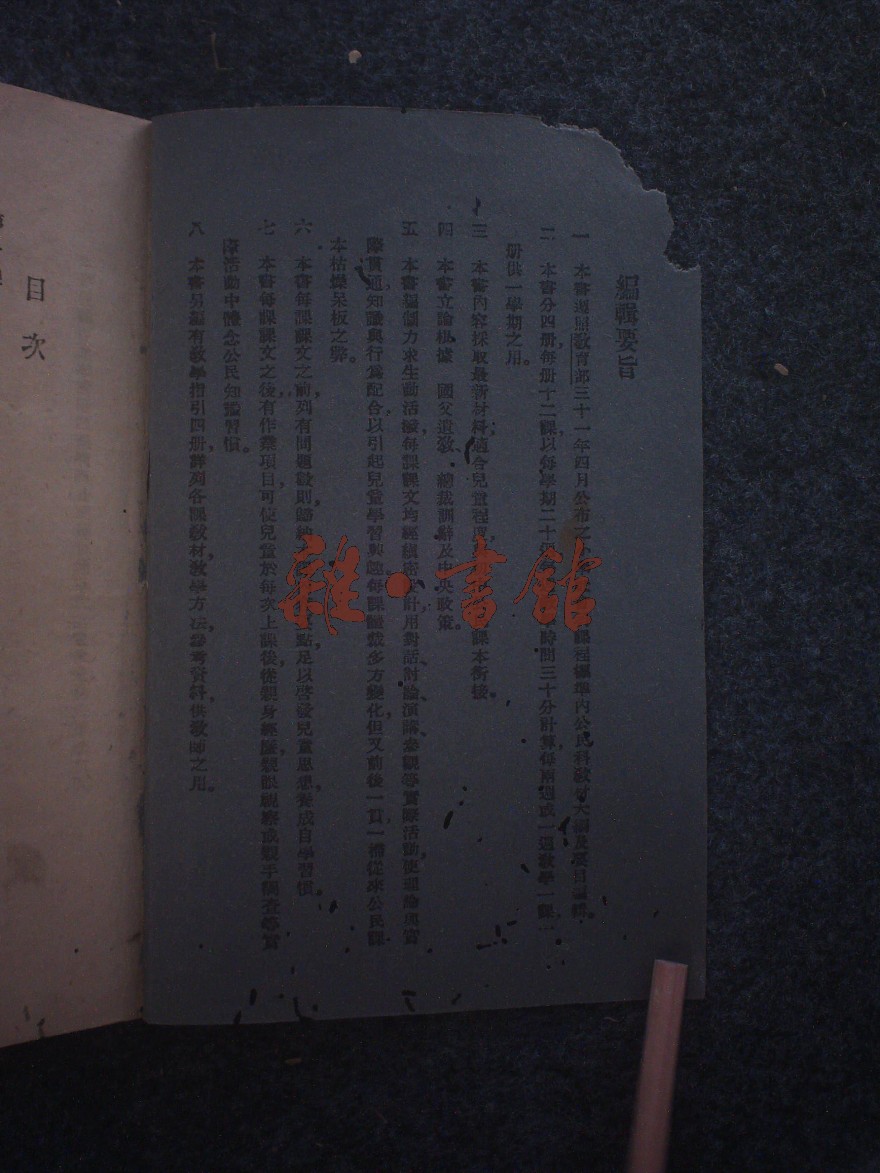 編輯要旨
一 本書遵照教育部三十一年四月公布之 課程標準內公民科教材大綱及要目編輯。
二 本書分四册，每册十二課，以每學期二十 時間三十分計算，每兩週或一週教學一課，一
册供一學期之用。
三 本書內容採取最新材料，適合兒童程度， 課本銜接。
四 本書立論根據 國父遺敎、總裁訓辭及中央政策。
五 本書編制力求生動活潑，每課課文均經縝密設計，用對話、討論、演講、參觀等實際活動，使理論與實
際貫通，知識與行爲配合，以引起兒童學習興趣。每課體裁多方變化，但又前後一貫，一掃從來公民課
本枯燥呆板之弊。
六 本書每課課文之前，列有問題數則，歸納 點，足以啓發兒童思想，養成自學習慣。
七 本書每課課文之後，有作業項目，可使兒童於每次上課後，從親身經歷、親眼視察或親手稿查等實
際活動中，體念公民知識習慣。
八 本書另編有教學指引四册，詳列各課教材、教學方法、參考資料，供教師之用。
目次
雜·書館